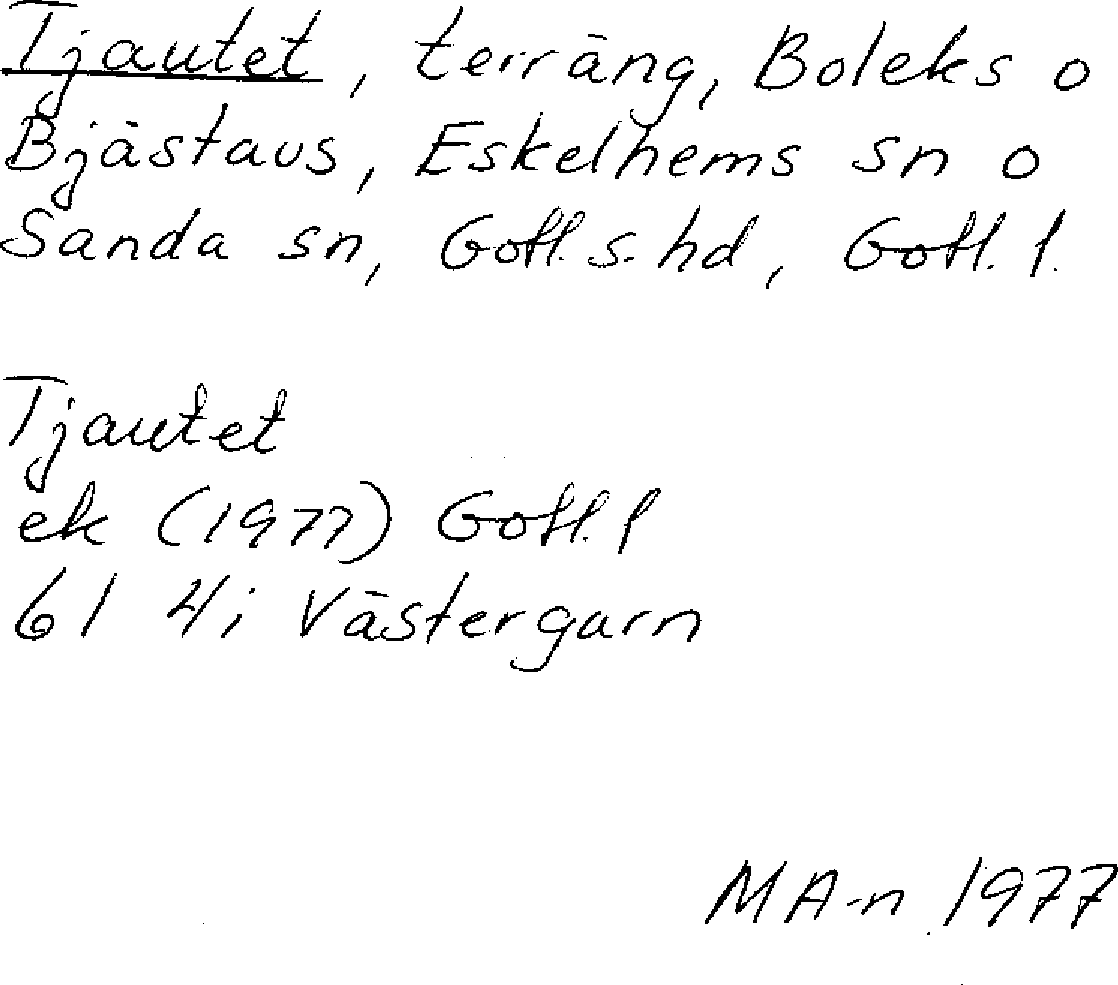 Tjautet, terräng, Boleks o
Bjästavs, Eskelhems sn o
Sanda sn, Gotl. s. hd, Gotl. l.
Tjautet
ek (1977) Gotl. l
61 4i Västergarn
MA-n 1977